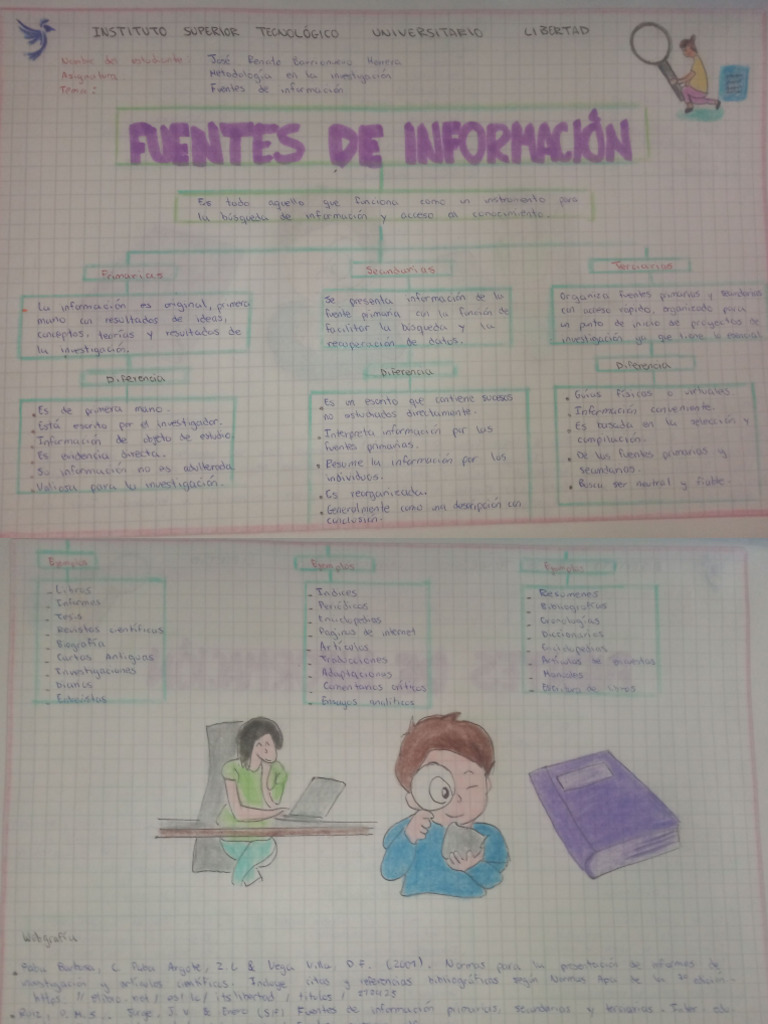 INSTITUTO SUPERIOR TECNOLÓGICO UNIVERSITARIO LIBERTAD
Nombre del estudiante: José Renato Herrera
Asignatura Metodología en la investigación
Tema: Fuentes de información
FUENTES DE INFORMACIÓN
Es todo aquello que funciona como un instrumento para
la búsqueda de información y acceso al conocimiento.
Primarias
La información es original, primera
mano con resultados de ideas,
conceptos, teorías y resultados de
la investigación.
Diferencia
• Es de primera mano.
• Está escrito por el investigador.
• Información de objeto de estudio.
• Es evidencia directa.
• Su información no es adulterada
• Valiosa para la investigación.
Ejemplos
- Libros
- Informes
- Tesis
- Revistas científicas
- Biografía
- Cartas Antiguas
- Investigaciones
- Diarios
Secundarias
Se presenta información de la
fuente primaria con la función de
facilitar la búsqueda y la
recuperación de datos.
Diferencia
• Es un escrito que contiene sucesos
no estudiados directamente.
• Interpreta información por las
fuentes primarias.
• Resume la información por los
individuos.
• Es reorganizada.
• Generalmente como una descripción con
conclusión.
Ejemplos
- Índices
- Periódicos
- Enciclopedias
- Paginas de internet
- Artículos
- Traducciones
- Adaptaciones
- Comentarios críticos
- Ensayos analíticos
Terciarias
Organiza fuentes primarias y secundarias
con acceso rápido, organizado para
un punto de inicio de proyectos de
investigación ya que tiene lo esencial
Diferencia
• Guías físicas o virtuales
• Información conveniente.
• Es basada en la selección y
compilación.
• De las fuentes primarias y
secundarias.
• Busca ser neutral y fiable.
Ejemplos
- Resúmenes
- Bibliografías
- Cronologías
- Diccionarios
- Enciclopedias
- Artículos de
- Manuales
Webgrafía
Argote, Z. L & Vega (2009). Normas para la presentación de informes de
investigación y artículos científicos. Incluye citas y referencias bibliográficas según Normas Apa
Ruiz, Fuentes de información primarias, secundarias y terciarias.